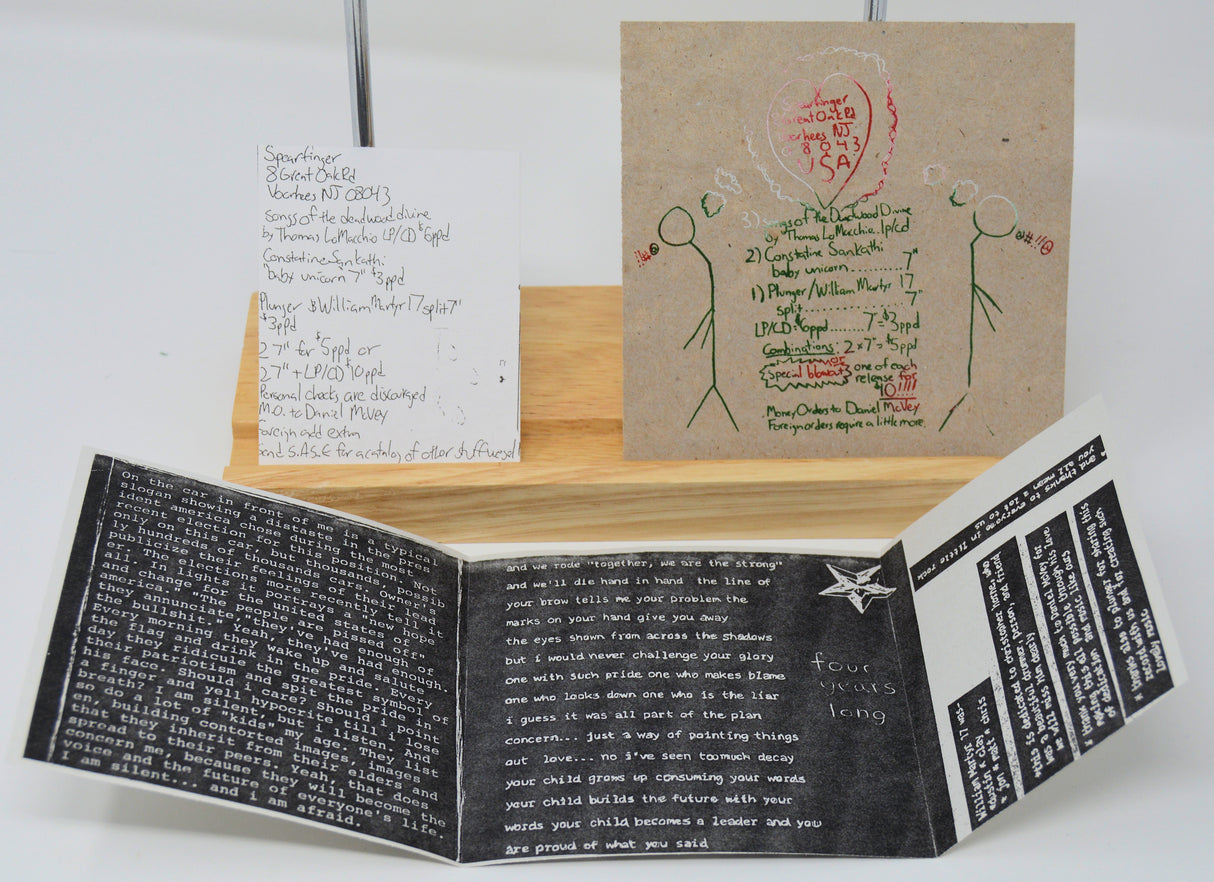 Spearfinger
8 Great Oak Rd
Voorhees NJ 08043
songs of the deadwood divine
by Thomas LoMacchio LP/CD $6ppd
Constatine Sankathi
"baby unicorn" 7" $3ppd
Plunger & William Martyr 17 split 7"
$3ppd
2 7" for $5ppd or
2 7" + LP/CD $10ppd
Personal checks are discouraged
M.O. to Daniel McVey
Foreign add extra
send S.A.S.E for a catalog of other stuff we sell
Spearfinger
Great Oak Rd
Voorhees NJ
8043
USA
3) songs of the Deadwood Divine
by Thomas LoMacchio..lp/cd
2) Constatine Sankathi
baby unicorn.......... 7"
1) Plunger/William Martyr 17
split.................... 7"
LP/CD = $6ppd.......7" = $3ppd
Combinations: 2x7" = $5ppd
or
Special blowout one of each
release for
$10!!!!
Money Orders to Daniel McVey
Foreign orders require a little more.
On the car in front of me is a typical
slogan showing a distaste in the pres
ident america chose during the most
recent election for this position. Not
only on this car, but thousands, possib
ly hundreds of thousands care owner's
publicize their feelings and tell it
er. The elections more recently reflect
al. In lights it portrays a "new hope
and change for the united states of
america." "The people are pissed off"
they annunciate,"they've had enough of
the bullshit." Yeah, they've had enough.
Every morning they wake up and salute
the flag and drink in the pride. Every
day they ridicule the greatest symbol of
their patriotism and spit the pride in
his face. Should i care? Should i point
a fingor and yell hypocrite till i lose
breath? I am silent, but i listen. And
so do a lot of "kids" my age. They list
en, building contorted images, images
that they inherit from their elders and
spread to their peers. Yeah, that does
concern me, because they will become the
voice and the future of everyone's life.
I am silent... and i am afraid.
and we rode "together, we are the strong"
and we'll die hand in hand the line of
your brow tells me your problem the
marks on your hand give you away
the eyes shown from across the shadows
but i would never challenge your glory
one with such pride one who makes blame
one who looks down one who is the liar
i guess it was all part of the plan
concern... just a way of pointing things
out love... no i've seen toomuch decay
your child grows up consuming your words
your child builds the future with your
words your child becomes a leader and you
are proud of what you said
four
years
long
and thanks to everyone in little rock
you all mean a lot to us